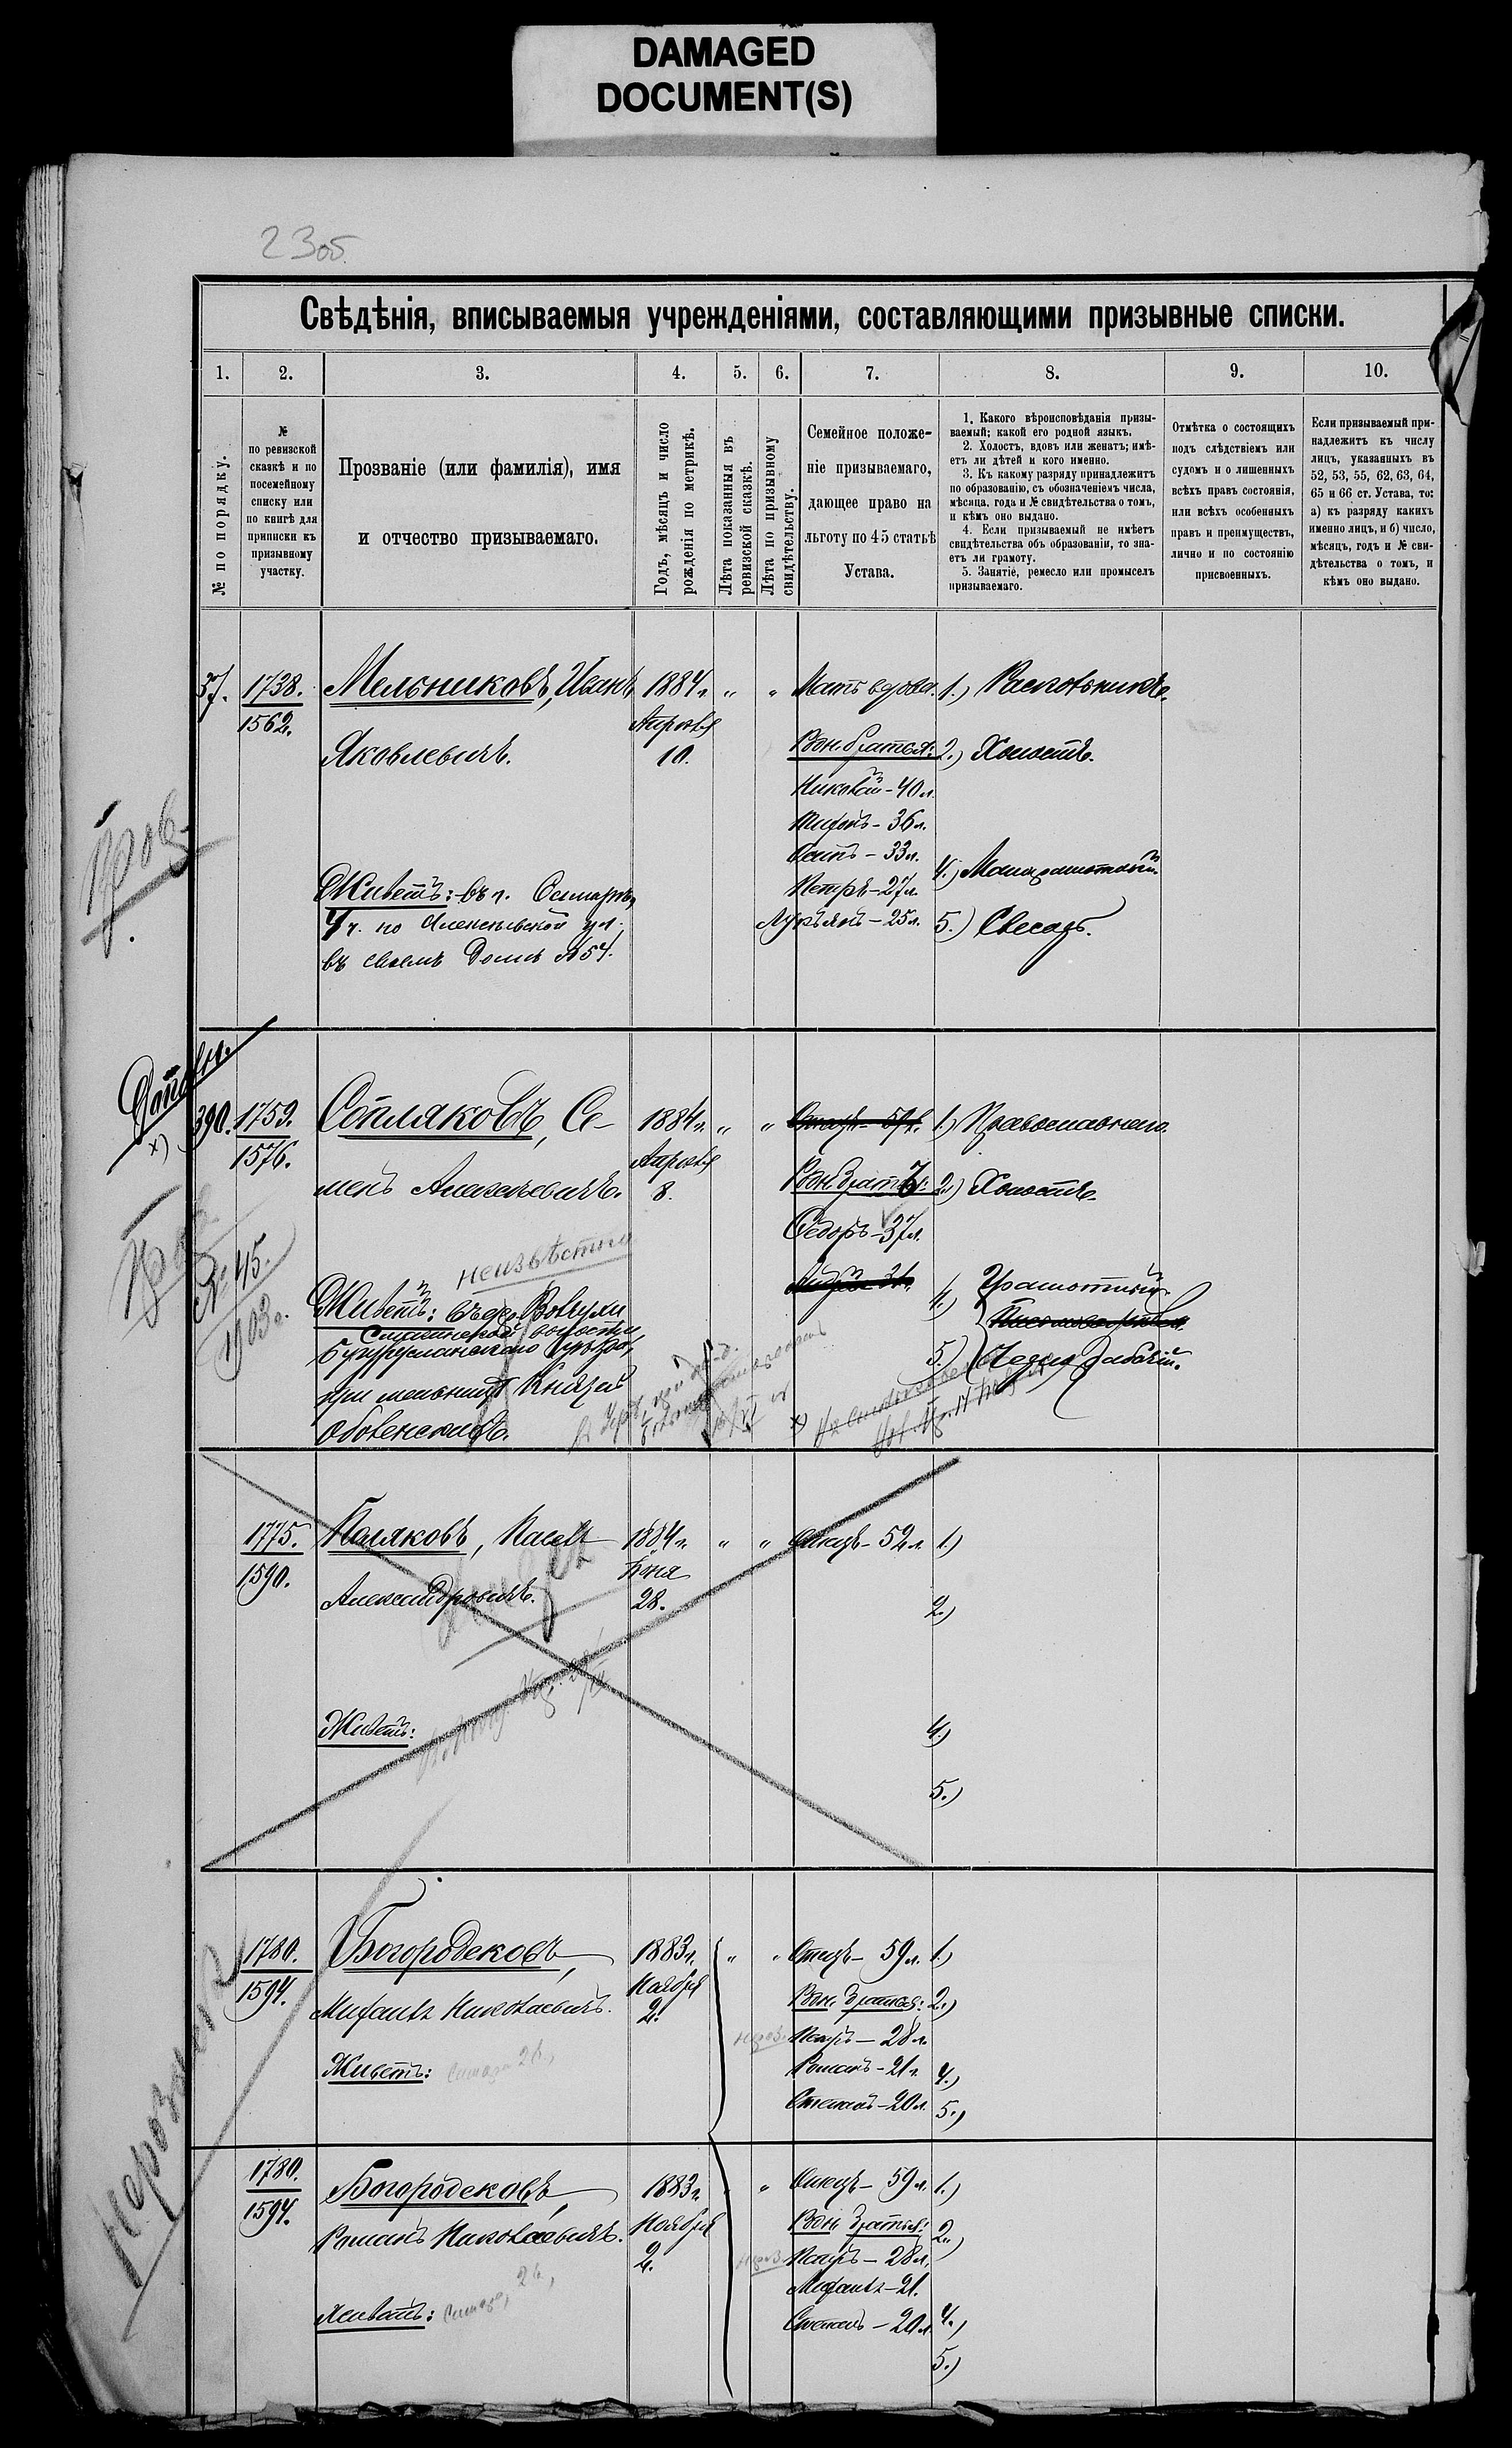 DAMAGED
DOCUMENT(S)
23об.
Свѣдѣнія, вписываемыя учрежденіями, составляющими призывные списки.
1. 2. 3. 4. 5. 6. 7. 8. 9. 10.
№ по порядку.
№
по ревизской
сказкѣ и по
посемейному
списку или
по книгѣ для
приписки къ
призывному
участку.
Прозваніе (или фамилія), имя
и отчество призываемаго.
Годъ, мѣсяцъ и число
рожденія по метрикѣ.
Лѣта показанныя въ
ревизской сказкѣ.
Лѣта по призывному
свидѣтельству.
Семейное положе-
ніе призываемаго,
дающее право на
льготу по 45 статьѣ
Устава.
1. Какого вѣроисповѣданія призы-
ваемый; какой его родной языкъ.
2. Холостъ, вдовъ или женатъ; имѣ-
етъ ли дѣтей и кого именно.
3. Къ какому разряду принадлежитъ
по образованію, съ обозначеніемъ числа,
мѣсяца, года и № свидѣтельства о томъ,
и кѣмъ оно выдано.
4. Если призываемый не имѣетъ
свидѣтельства объ образованіи, то зна-
етъ ли грамоту.
5. Занятіе, ремесло или промыселъ
призываемаго.
Отмѣтка о состоящихъ
подъ слѣдствіемъ или
судомъ и о лишенныхъ
всѣхъ правъ состоянія,
или всѣхъ особенныхъ
правъ и преимуществъ,
лично и по состоянію
присвоенныхъ.
Если призываемый при-
надлежитъ къ числу
лицъ, указанныхъ въ
52, 53, 55, 62, 63, 64,
65 и 66 ст. Устава, то:
а) къ разряду какихъ
именно лицъ, и б) число,
мѣсяцъ, годъ и № сви-
дѣтельства о томъ, и
кѣмъ оно выдано.
37. 1738. Мельниковъ, Иванъ 1884г. „ „ Мать вдова. 1.) Раскольникъ.
1562. Апрѣля
Яковлевичъ. 10. Родн. братья: 2.) Холостъ.
Николай - 40 л.
36 л.
Осипъ - 33 л.
4.) Малограмотный.
Живетъ: въ г. Самарѣ, Петръ - 27 л.
4 ч. по Алексѣевской ул. Лукьянъ - 25 л. 5.) Слесарь.
въ своемъ домѣ № 54.
390. 1759. Сопляковъ, Се- 1884г. „ „ Отецъ - 1.) Православнаго.
х)
1576. Апрѣля
менъ Алексѣевичъ. 8. Родн. братъ: 2.) Холостъ.
Ѳедоръ - 37 л.
неизвѣстно
№ 45.
1903г.
Андрей 4.) Грамотный.
Живетъ: въ
волости,
Бугурусланскаго уѣзда, 5.) рабочій.
при мельницѣ Князей
Оболенскихъ.
1775. Поляковъ, Павелъ 1884г. „ „ Отецъ - 52 л. 1.)
1590. Іюня
Александровичъ. 28. 2.)
Живетъ: 4.)
5.)
1780. Богородсковъ, 1883г. „ „ Отецъ - 59 л. 1.)
1594. Ноября
Николаевичъ. 2. Родн. братья: 2.)
Петръ - 28 л.
Живетъ: Романъ - 21 г. 4.)
Степанъ - 20 л. 5.)
1780. Богородсковъ, 1883г. „ Отецъ - 59 л. 1.)
1594. Ноября
Романъ Николаевичъ. 2. Родн. братья: 2.)
Петръ - 28 л.
21.
Живетъ: Степанъ - 20 л. 4.)
5.)